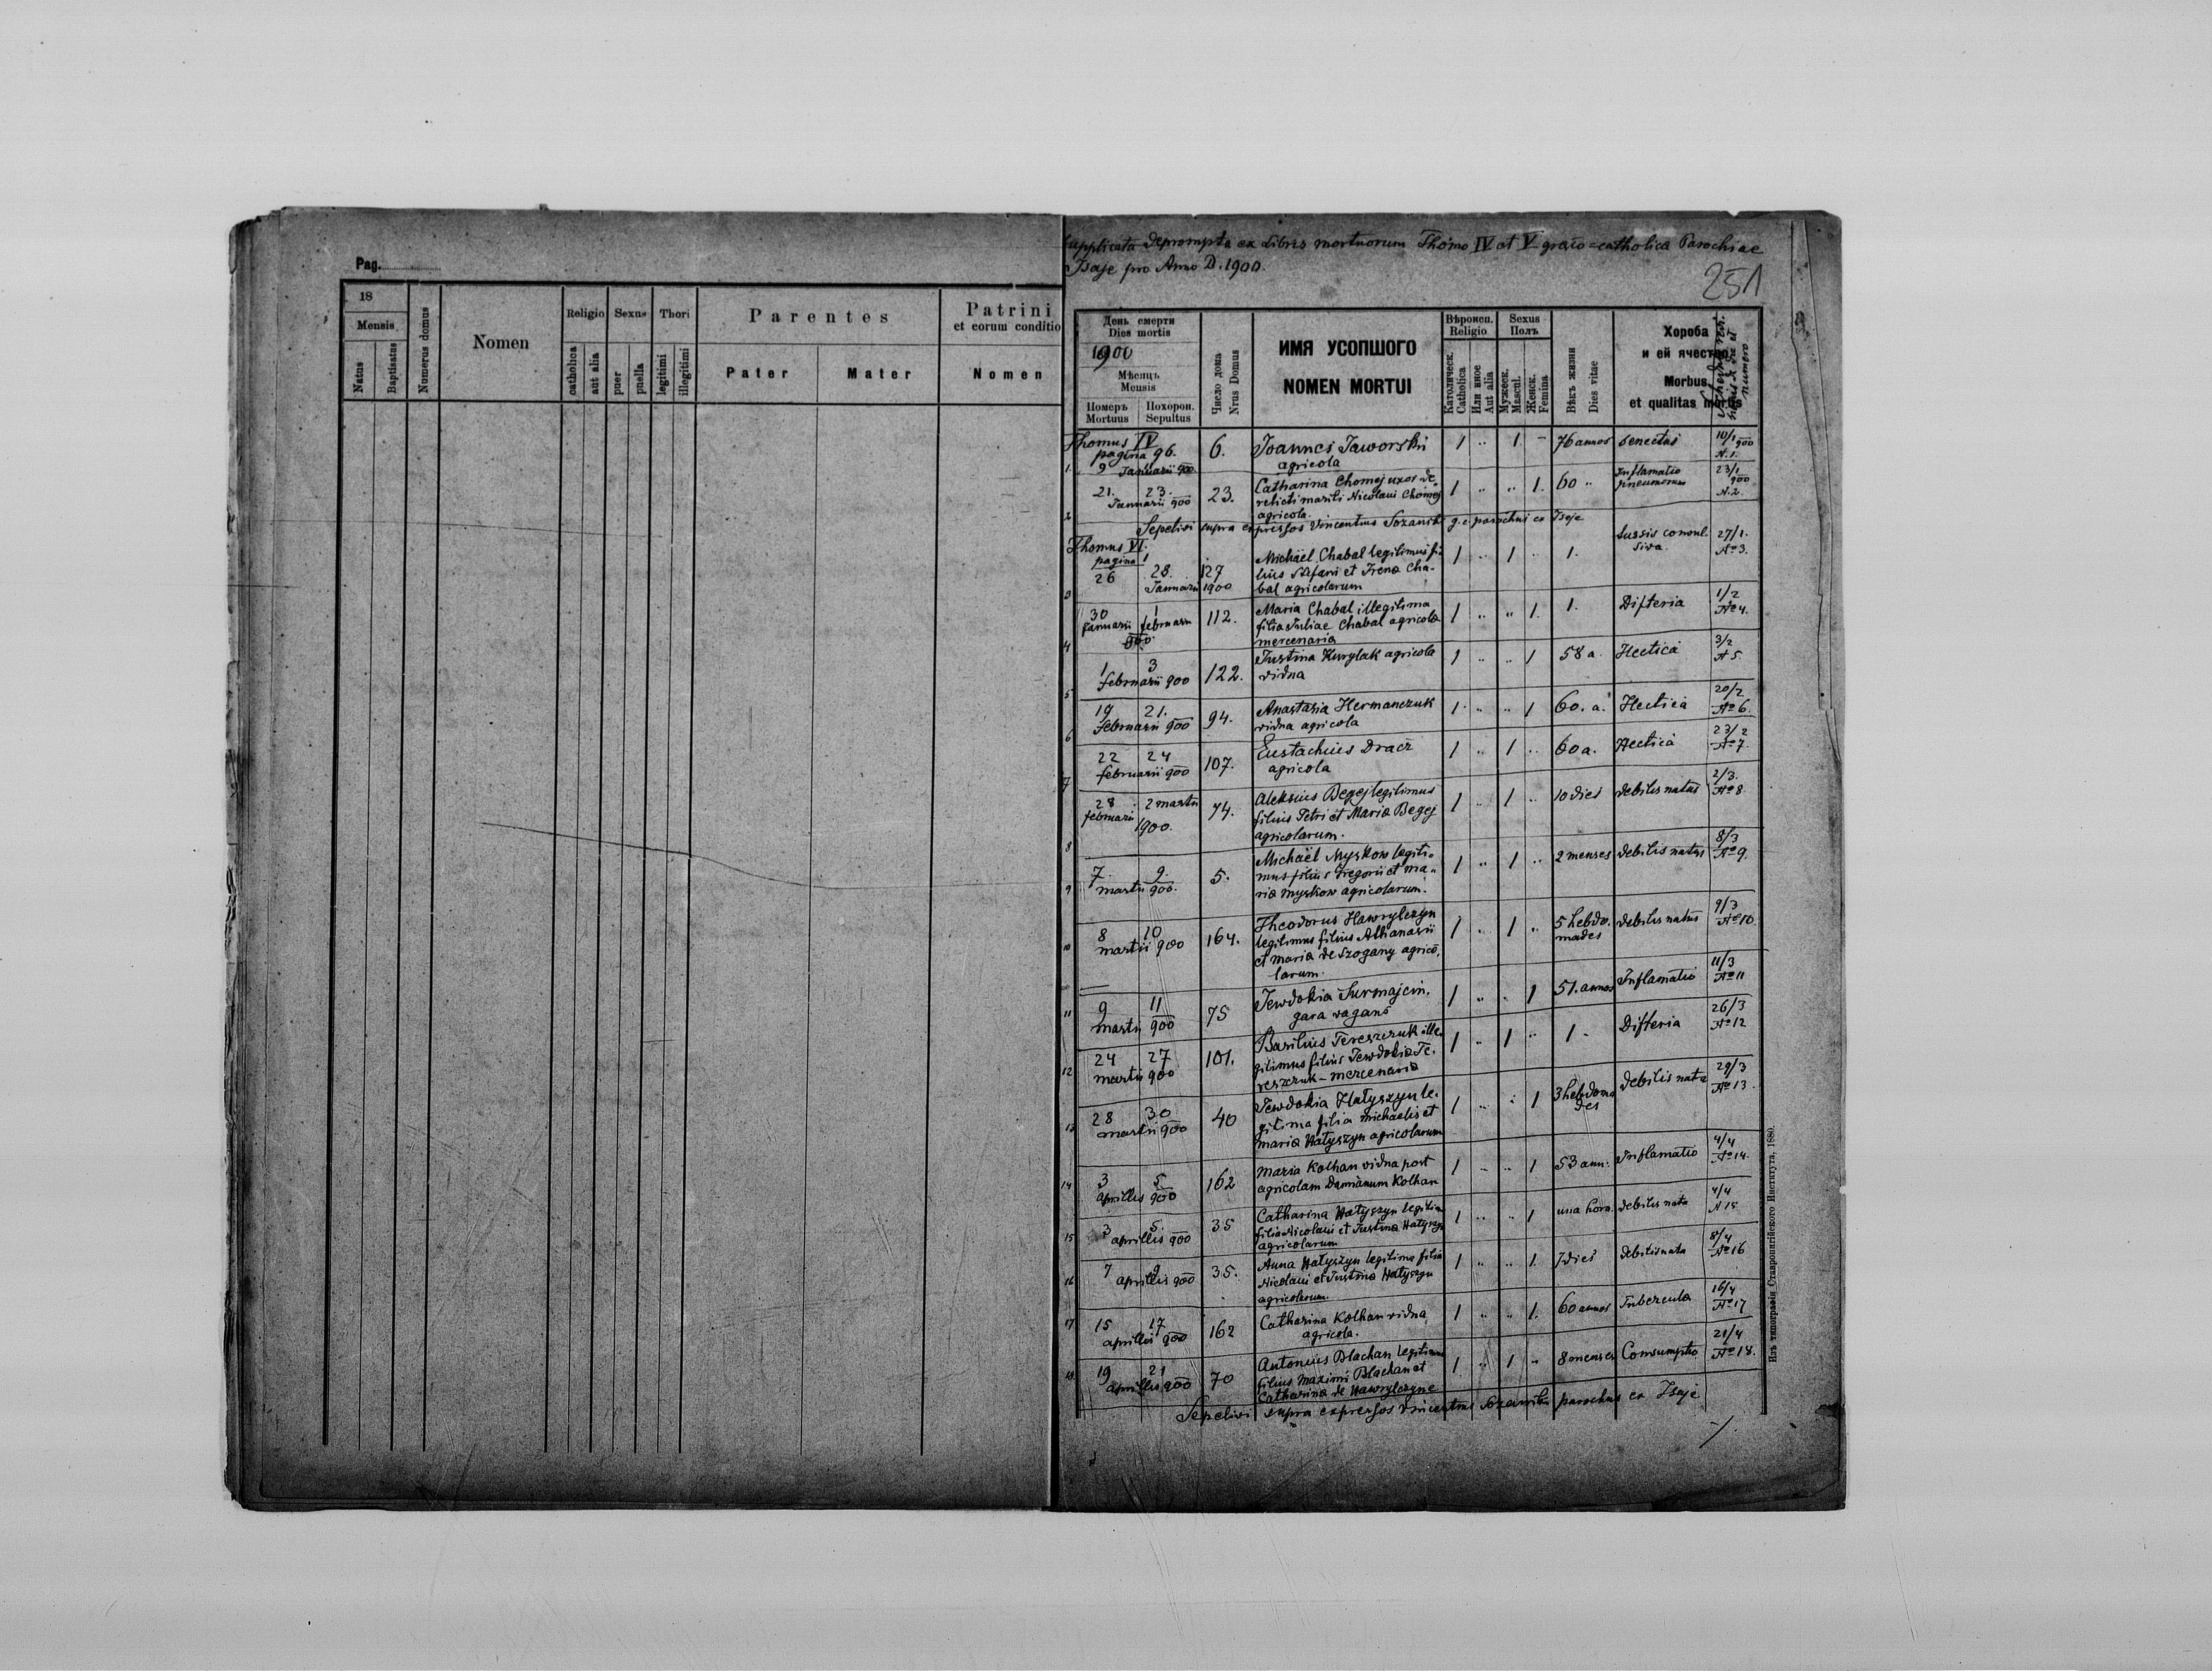 Pag.
18
Mensis
Natus
Baptisatus
Numerus domus
Nomen
Religio
catholica
aut alia
Sexus
puer
puella
Thori
legitimi
illegitimi
Parentes
Pater
Mater
Patrini
et eorum conditio
Nomen
Dupplicata deprompta ex Libris mortuorum Thomo IV et V graeco-catholica Parochiae
Isaje pro Anno D. 1900.
251
День смерти
Dies mortis
1900
Мѣсяцъ
Mensis
Померъ
Mortuus
Похорон.
Sepultus
Число дома
Nrus Domus
ИМЯ УСОПШОГО
NOMEN MORTUI
Вѣроисп.
Religio
Католическ.
Catholica
Или иное
Aut alia
Sexus
Полъ
Мужеск.
Mascul.
Женск.
Femina
Вѣкъ жизни
Dies vitae
Хороба
и ей ячество
Morbus
et qualitas mortis
numero
Thomus IV
pagina 96.
1. 9 Januarii 900. 6. Joannes Jaworski 1 .. 1. – 76 annos senectus 10/1 900 N. 1.
agricola
2 21. 23. Januarii 900 23. Catharina Chomej uxor de- 1 .. .. 1. 60 .. Inflamatio 23/1 900 N. 2.
relicti mariti Nicolaui Chomej pneumorum
agricola.
Sepelivi supra expressos Vincentius Sozański g. c. parochus ex Isaje
Thomus VI.
pagina 1
3 26 28. Januarii 1900 127 Michaël Chabal legitimus fi- 1 .. 1 .. 1. tussis convul- 27/1. No 3.
lius Stefani et Irena Cha- siva.
bal agricolarum
4 30 Januarii 1 februarii 900. 112. Maria Chabal illegitima 1 .. .. 1. 1. Difteria 1/2 No 4.
filia Juliae Chabal agricola
mercenaria
5 1 3 februarii 900 122. Justina Kurylak agricola 1 .. .. 1 58 a. Hectica 3/2 N 5.
vidua
6 19 21. februarii 900 94. Anastasia Hermanczuk 1 .. .. 1 60. a. Hectica 20/2 No 6.
vidua agricola
7 22 24 februarii 900 107. Eustachius Dracz 1 .. 1 .. 60 a. Hectica 23/2 No 7.
agricola
8 28 februarii 2 martii 1900. 74. Aleksius Begej legitimus 1 .. 1 .. 10 dies debilis natus 2/3. No 8.
filius Petri et Maria Begej
agricolarum.
9 7. 9. martii 900. 5. Michaël Myskow legiti- 1 .. 1 .. 2 menses debilis natus 8/3 No 9.
mus filius Gregorii et Ma-
ria Myskow agricolarum.
10 8 10 martii 900 164. Theodorus Hawrylczyn 1 .. 1 .. 5 hebdo- debilis natus 9/3 No 10.
legitimus filius Athanasii mades
et Maria de Szogany agrico-
larum.
11 9 11 martii 900 75 Jewdokia Surmaj cin- 1 .. .. 1 51. annos Inflamatio 11/3 No 11
gara vagans
12 24 27 martii 900 101. Basilius Tereszczuk ille- 1 .. 1 .. 1 - Difteria 26/3 No 12
gitimus filius Jewdokia Te-
reszczuk – mercenaria
13 28 30 martii 900 40 Jewdokia Hatyszyn le- 1 .. .. 1 3 hebdoma debilis nata 29/3 No 13.
gitima filia Michaelis et des
Maria Hatyszyn agricolarum
14 3 5 aprilis 900 162 Maria Kolhan vidua post 1 .. .. 1 53 ann. Inflamatio 4/4 No 14.
agricolam Damianum Kolhan
15 3 5. aprilis 900 35 Catharina Hatyszyn legitima 1 .. .. 1 una hora. debilis nata 4/4 N 15
filia Nicolaui et Justina Hatyszyn
agricolarum
16 7 9 aprilis 900 35. Anna Hatyszyn legitima filia 1 .. .. 1. 7 dies debilis nata 8/4 No 16
Nicolaui et Justina Hatyszyn
agricolarum.
17 15 17 aprilis 900 162 Catharina Kolhan vidua 1 .. .. 1. 60 annos Tubercula 16/4 No 17
agricola.
18. 19 21 aprilis 900 70 Antonius Blachan legitimus 1 .. 1 .. 8 menses Consumptio 21/4 No 18.
filius Maximi Blachan et
Catharina de Hawrylczyne
Sepelivi supra expressos Vincentius Sozański parochus ex Isaje
Изъ типографіи Ставропигійского Института, 1880.